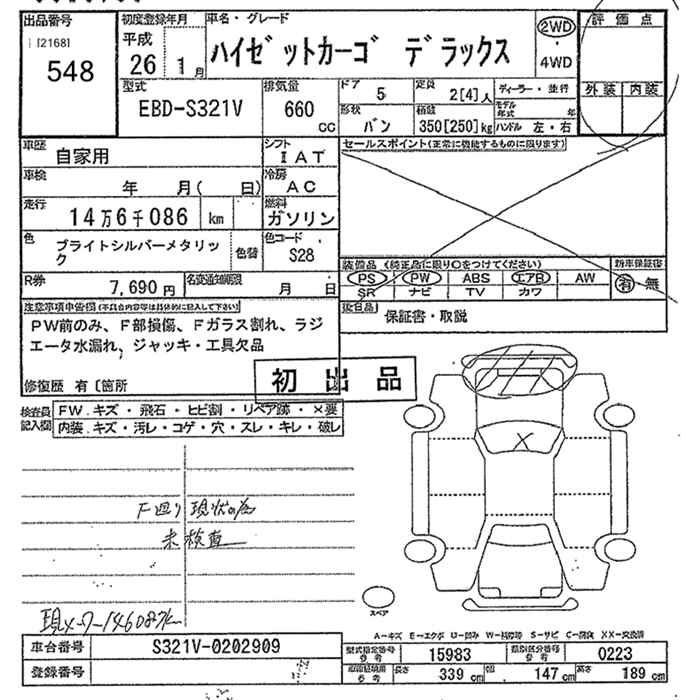 出品番号
[2168]
548
初度登録年月
平成
26 1月
車名・グレード
ハイゼットカーゴ デラックス
2WD
・
4WD
評価点
外装 内装
型式
EBD-S321V
排気量
660
CC
ドア
5
定員
2[4]人
ディーラー・並行
形状
バン
積載
350[250]kg
モデル年式 年
ハンドル 左・右
車歴
自家用
シフト
IAT
セールスポイント(正常に機能するものに限ります)
車検
年 月( 日)
冷房
AC
走行
14万6千086 km
燃料
ガソリン
色
ブライトシルバーメタリック
色替
色コード
S28
装備品 (純正品に限り○をつけてください)
新車保証書
PS PW ABS エアB AW
SR ナビ TV カワ
有・無
R券
7,690円
名変通知期限
月 日
後日品
保証書・取説
注意事項申告欄(不具合内容等は具体的に記入して下さい)
PW前のみ、F部損傷、Fガラス割れ、ラジ
エータ水漏れ、ジャッキ・工具欠品
修復歴 有〔箇所
初出品
検査員
記入欄
FW.キズ・飛石・ヒビ割・リペア跡・×要
内装.キズ・汚レ・コゲ・穴・スレ・キレ・破レ
F廻り現状の為
未検査
現メーター146087k
スペア
A-キズ E-エクボ U-凹み W-補修跡 S-サビ C-腐食 XX-交換済
車台番号
S321V-0202909
型式指定番号
参考
15983
類別区分番号
参考
0223
登録番号
参考
長さ
339 cm
幅
147 cm
高さ
189 cm